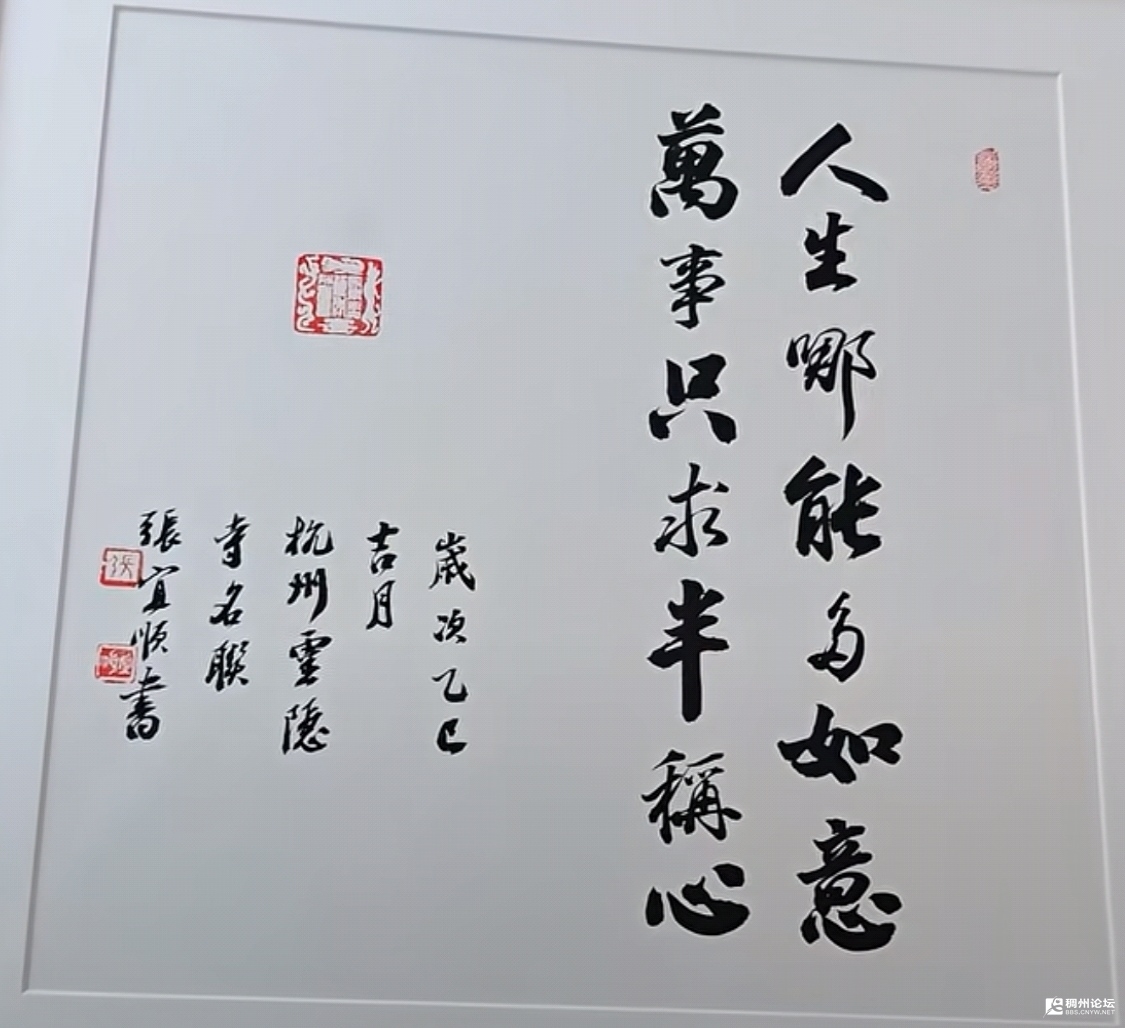 人生哪能多如意
萬事只求半稱心
歲次乙巳
吉月
杭州靈隱
寺名聯
張宜順書
張
稠州论坛
BBS.CNYW.NET